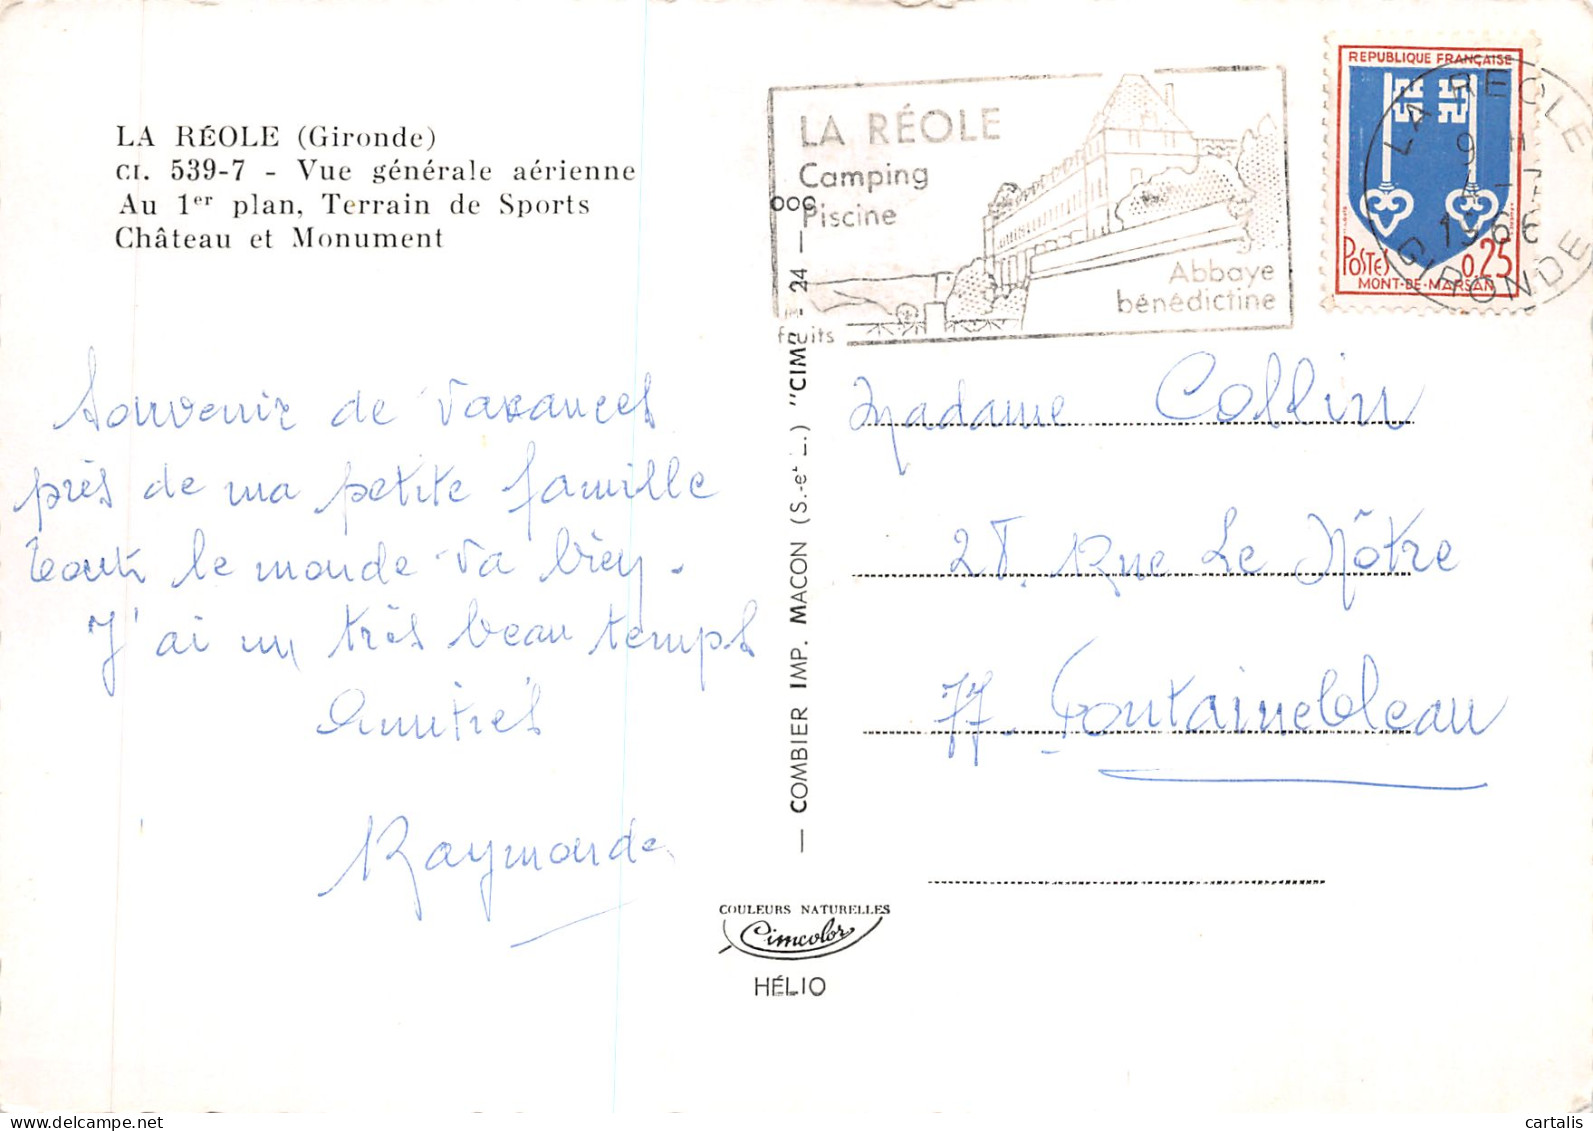 LA RÉOLE (Gironde)
CI. 539-7 - Vue générale aérienne
Au 1er plan, Terrain de Sports
Château et Monument
Souvenir de vacances
près de ma petite famille
tout le monde va bien.
J'ai un très beau temps
Amitiés
Raymonde
— COMBIER IMP. MACON (S.-et-L.) "CIM" - 24 — 000
COULEURS NATURELLES
Cimcolor
HÉLIO
LA RÉOLE
Camping
Piscine
fruits
Abbaye
bénédictine
REPUBLIQUE FRANÇAISE
POSTES 0,25
MONT-DE-MARSAN
LA REOLE
9 H
4 -7
1966
GIRONDE
Madame Collin
Rue Le Nôtre
77. Fontainebleau
cartalis
delcampe.net